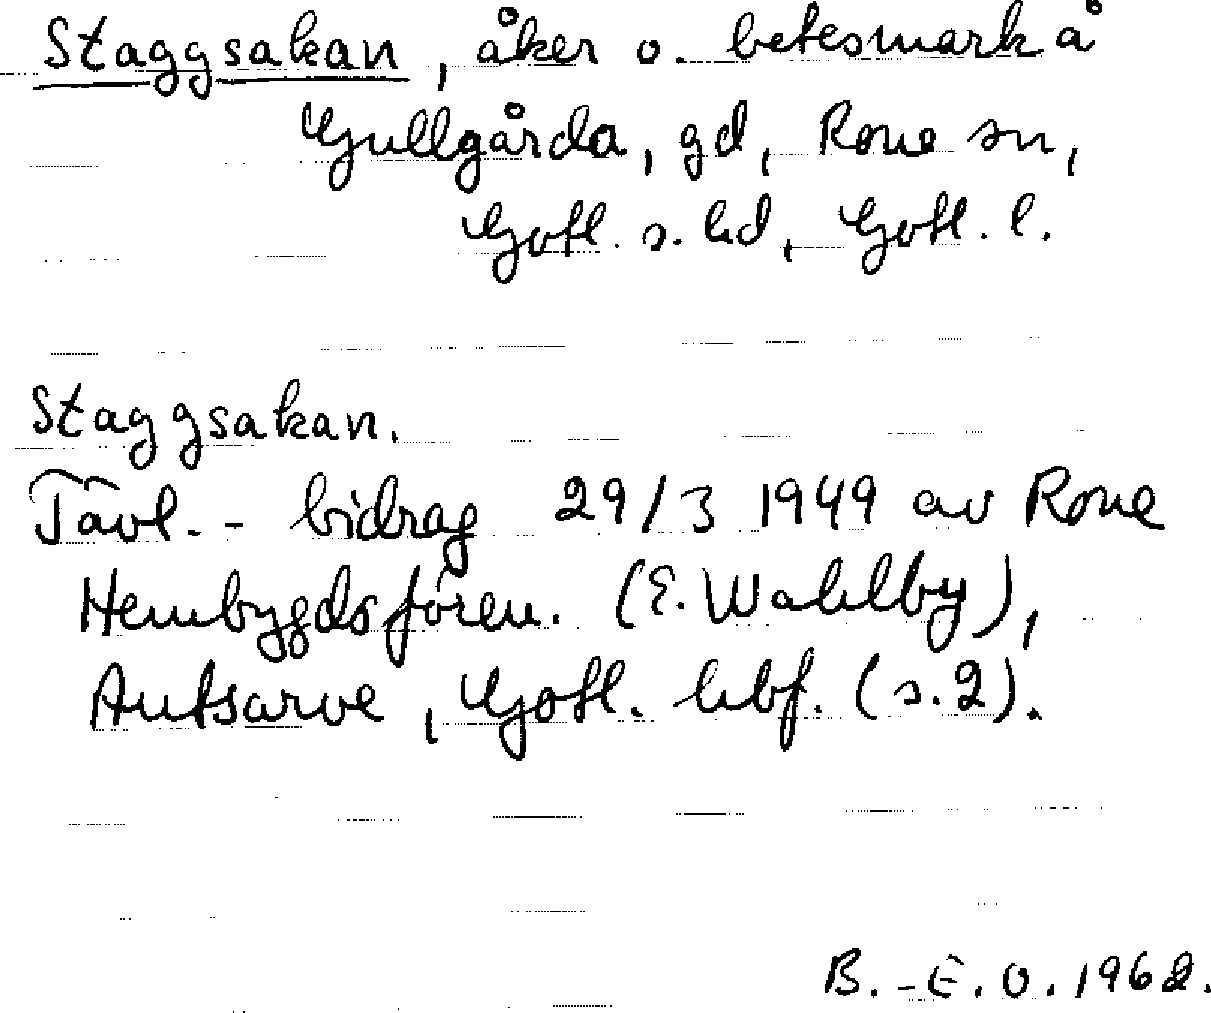 Staggsakan, åker o. betesmark å
Gullgårda, gd, Rone sn,
Gotl. s. hd, Gotl. l.
Staggsakan.
Tävl. - bidrag 29/3 1949 av Rone
Hembygdsfören. (E. Wahlby),
Autsarve, Gotl. hbf. (s. 2).
B. - E. O. 1962.